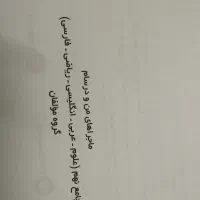 ماجراهای من و درسام
جامع نهم (علوم - عربی - انگلیسی - ریاضی - فارسی)
گروه مولفان